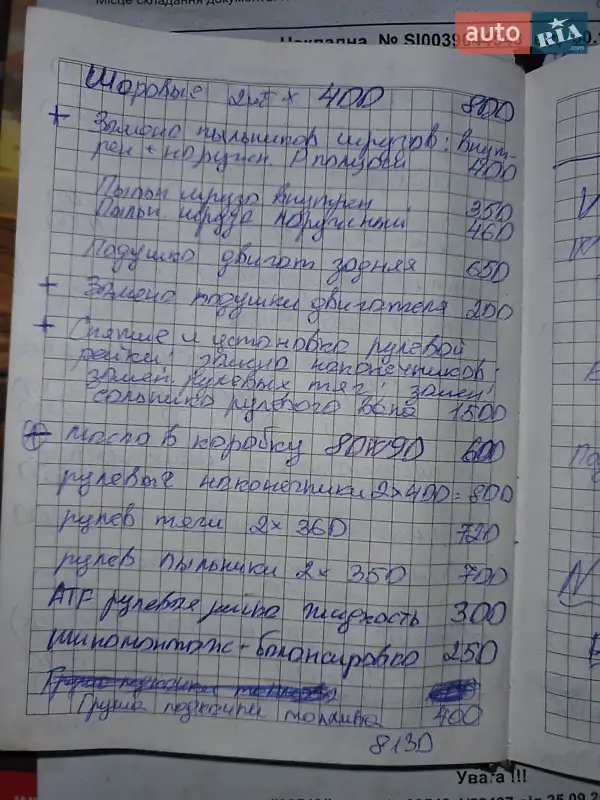 Місце складання документа:
auto RIA
Накладна № SI003
Шаровые 2шт × 400 800
+ Замена пыльников шругов: внут-
рен + наружн. 400
Пыльн шруза внутрен 350
Пыльн. шруза наружный 460
Подушка двигат задняя 650
+ Замена подушки двигателя 200
+ Снятие и установка рулевой
рейки; замена наконечников;
замен. рулевых тяг; замен.
сальника рулевого вала 1500
+ Масло в коробку 80W90 600
рулевые наконечники 2×400=800
рулев тяги 2× 360 720
рулев пыльники 2× 350 700
ATF рулевые рейка жидкость 300
шиномонтаж + балансировка 250
Груша подкачки топлива 400
8130
Увага !!!